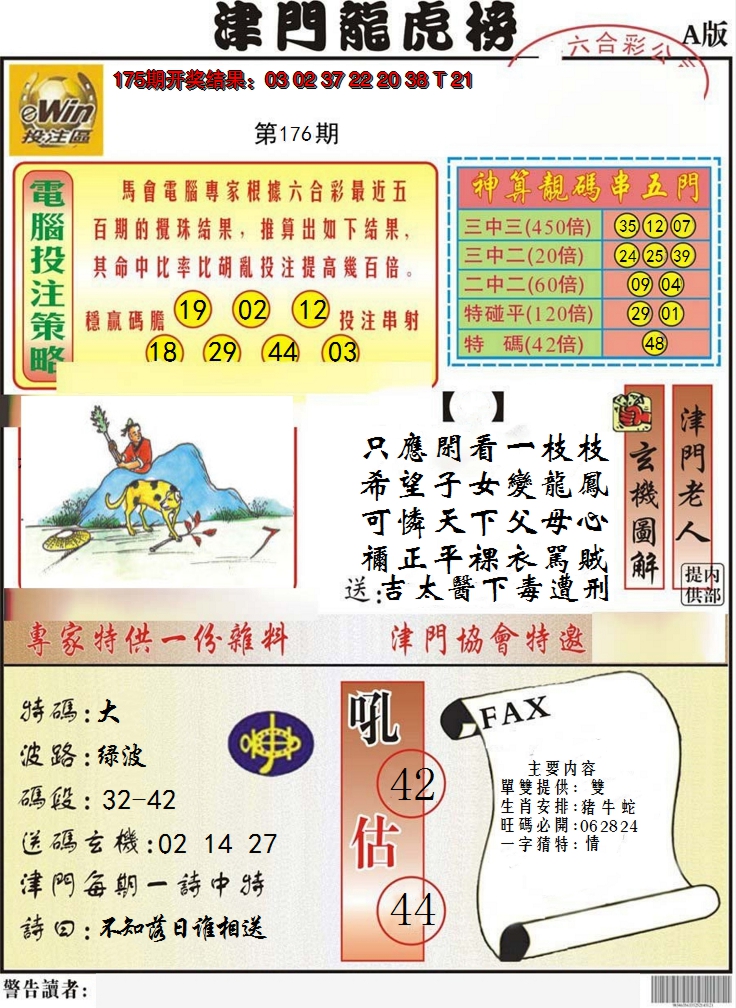 津門龍虎榜
六合彩公
A版
eWin
投注區
175期开奖结果：03 02 37 22 20 38 T 21
第176期
電腦投注策略
馬會電腦專家根據六合彩最近五
百期的攪珠结果，推算出如下结果，
其命中比率比胡亂投注提高幾百倍。
穩贏碼膽 19 02 12 投注串射
18 29 44 03
神算靚碼串五門
三中三(450倍) 35 12 07
三中二(20倍) 24 25 39
二中二(60倍) 09 04
特碰平(120倍) 29 01
特 碼(42倍) 48
【 】
只應閑看一枝枝
希望子女變龍鳳
可憐天下父母心
禰正平裸衣罵賊
送:吉太醫下毒遭刑
玄機圖解
津門老人
内部提供
專家特供一份雜料
津門協會特邀
特碼:大
波路:绿波
碼段:32-42
送碼玄機:02 14 27
津門每期一詩中特
詩曰:不知落日谁相送
吼 42
估 44
FAX
主要内容
單雙提供: 雙
生肖安排:豬牛蛇
旺碼必開:062824
一字猜特:情
警告讀者: